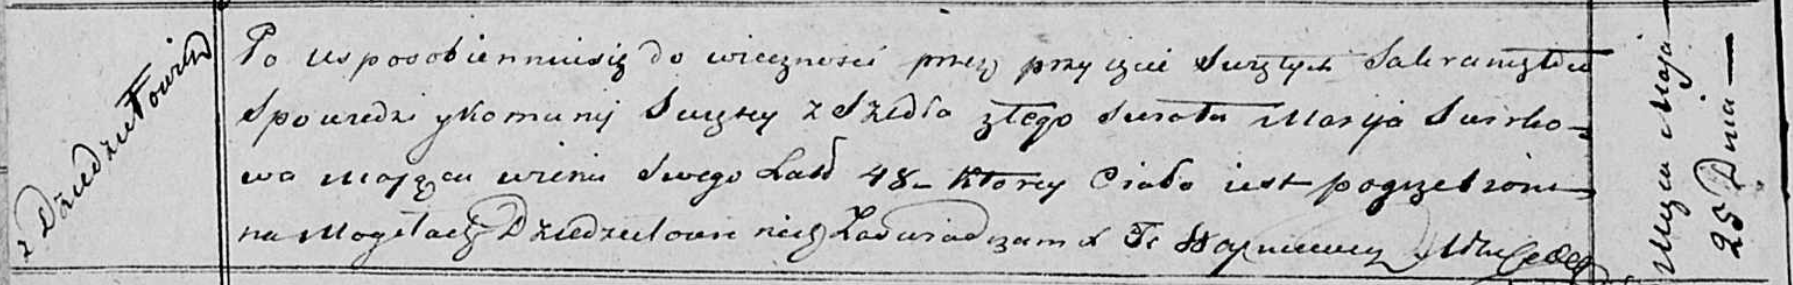 z Dziedziłowicz
Po usposobienniusię do wiecznosci przez przyięcie Swiętych Sakramętow
Spowiedzi y Komunij Swiętey z Szedła ztego Swiata Maryja Swirko=
wa maiąca wieku Swego Lat 48 – Ktorey Ciało iest pogrzebione
na Mogiłach Dziedziłowickich Zaswiadczam X
Msca Maja
25 Dnia